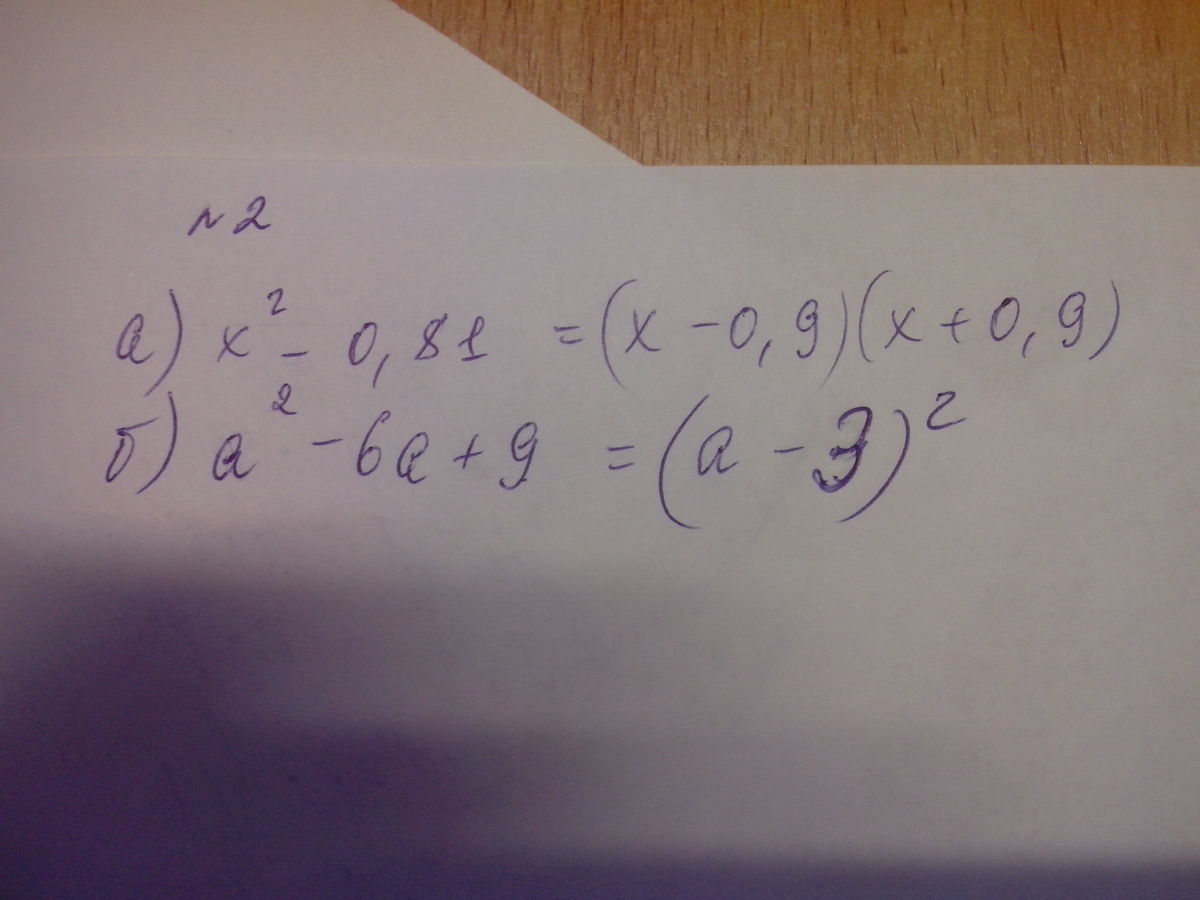 №2
а) x² - 0,81 = (x - 0,9)(x + 0,9)
б) a² - 6a + 9 = (a - 3)²